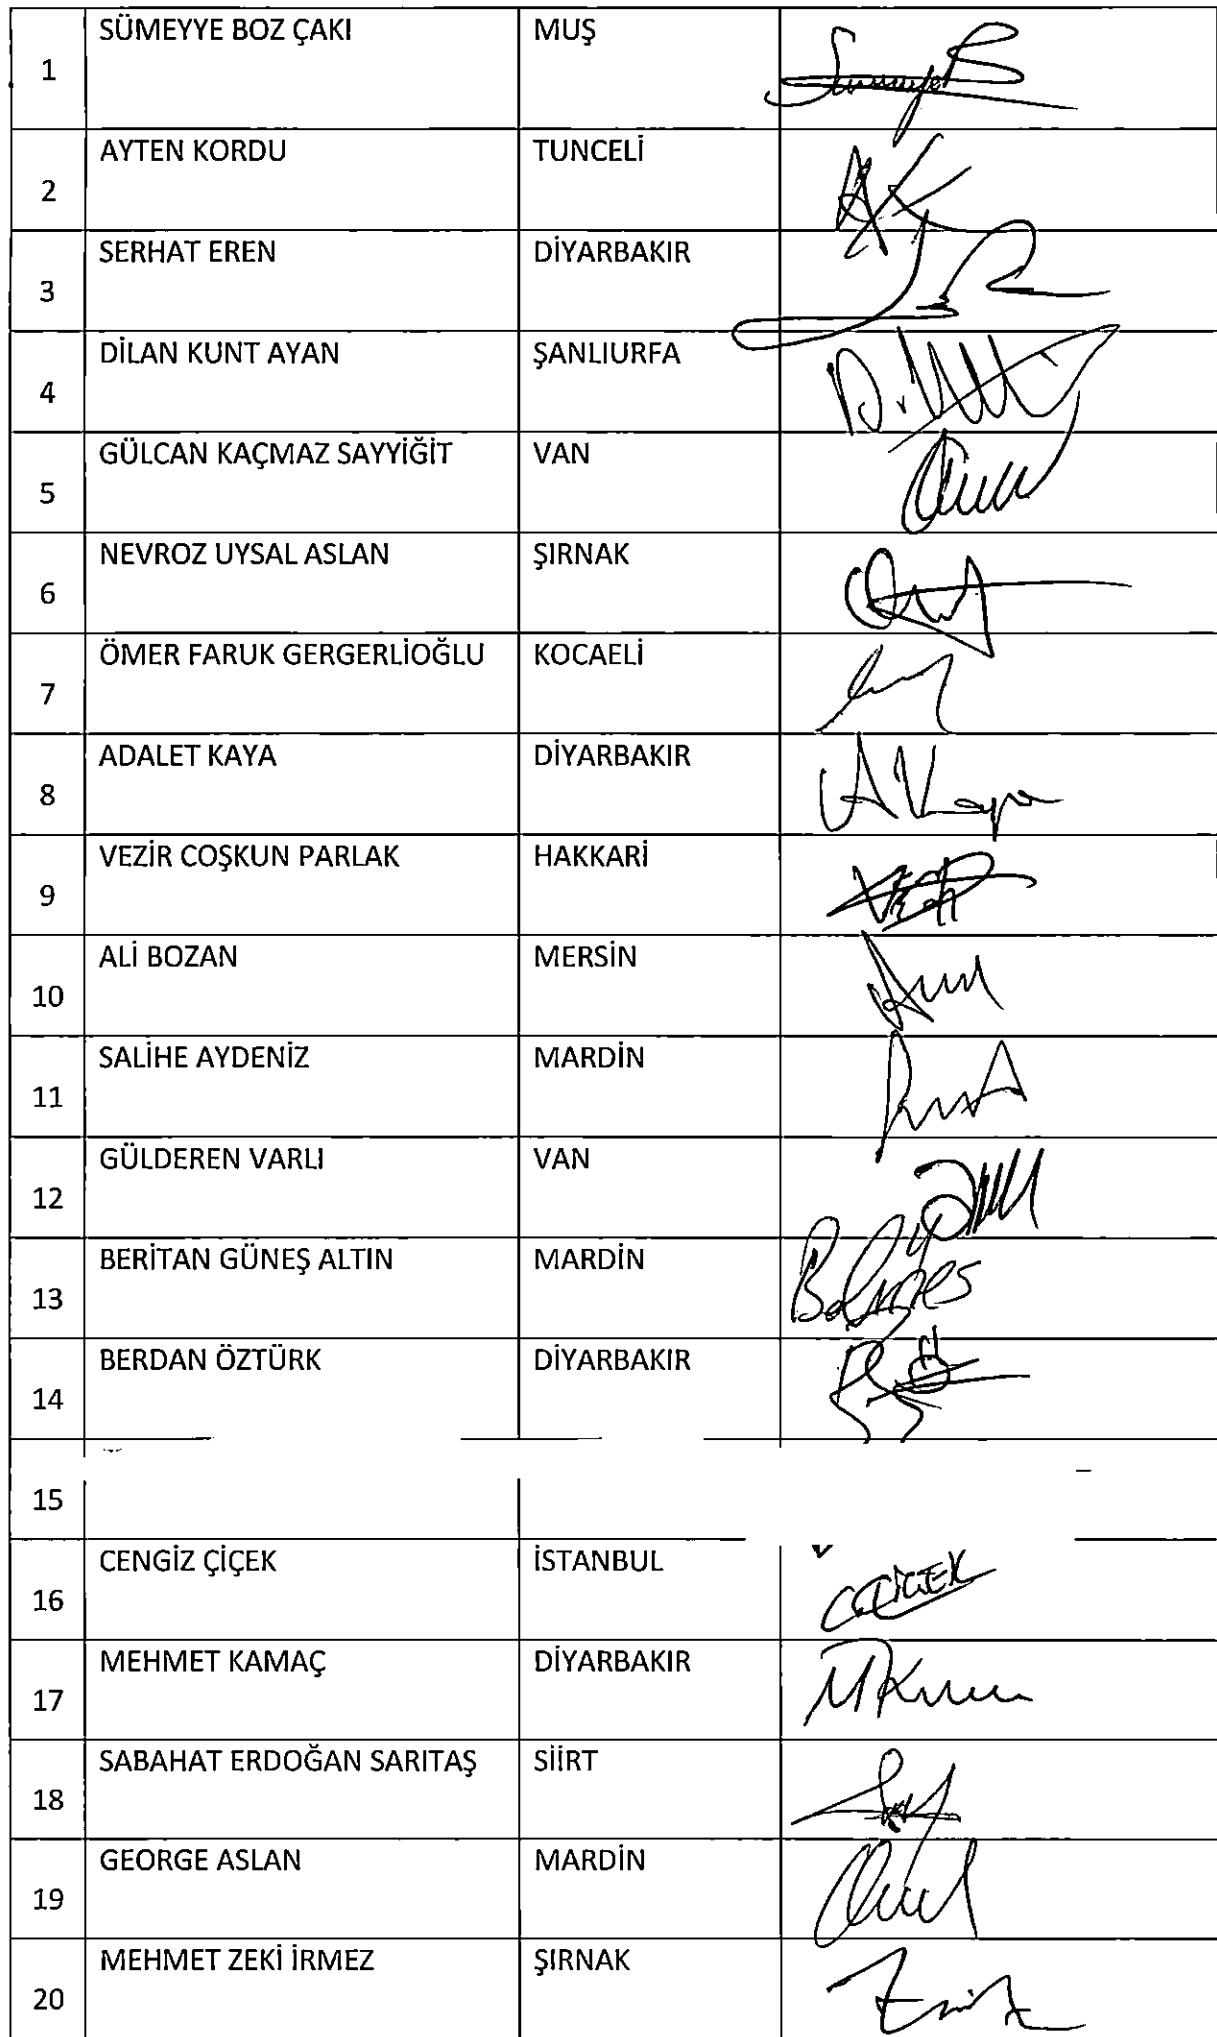 1 SÜMEYYE BOZ ÇAKI MUŞ
2 AYTEN KORDU TUNCELİ
3 SERHAT EREN DİYARBAKIR
4 DİLAN KUNT AYAN ŞANLIURFA
5 GÜLCAN KAÇMAZ SAYYİĞİT VAN
6 NEVROZ UYSAL ASLAN ŞIRNAK
7 ÖMER FARUK GERGERLİOĞLU KOCAELİ
8 ADALET KAYA DİYARBAKIR
9 VEZİR COŞKUN PARLAK HAKKARİ
10 ALİ BOZAN MERSİN
11 SALİHE AYDENİZ MARDİN
12 GÜLDEREN VARLI VAN
13 BERİTAN GÜNEŞ ALTIN MARDİN
14 BERDAN ÖZTÜRK DİYARBAKIR
15
16 CENGİZ ÇİÇEK İSTANBUL C.ÇİÇEK
17 MEHMET KAMAÇ DİYARBAKIR
18 SABAHAT ERDOĞAN SARITAŞ SİİRT
19 GEORGE ASLAN MARDİN
20 MEHMET ZEKİ İRMEZ ŞIRNAK